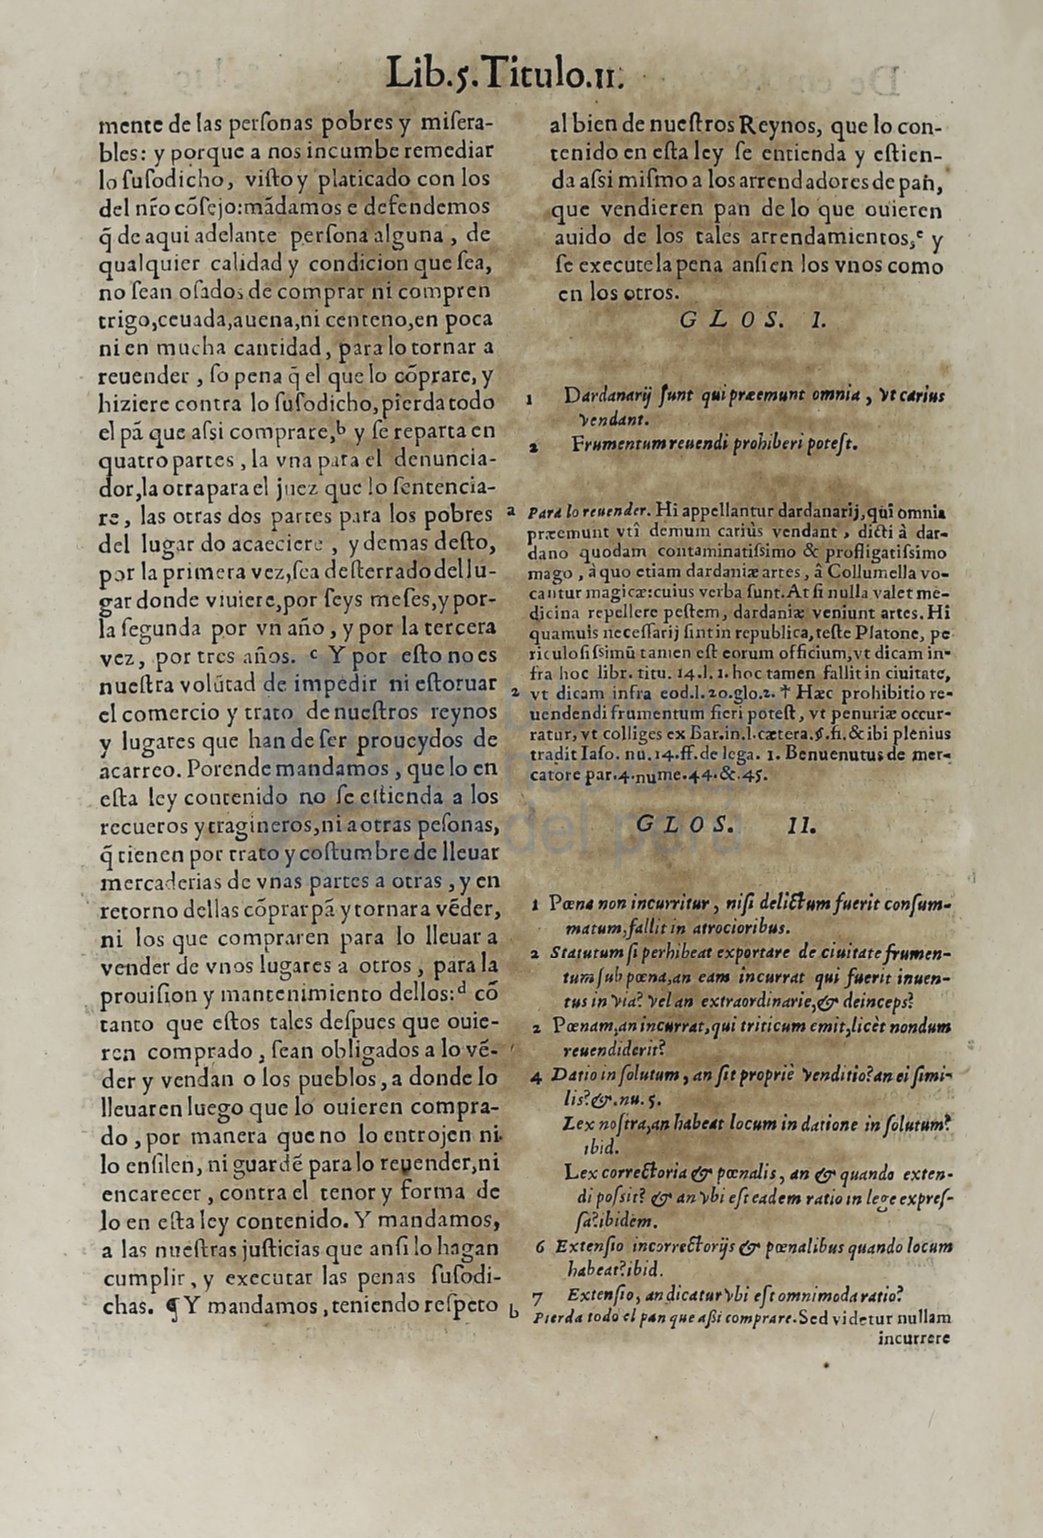 Lib.5.Titulo.11.
mente de las perſonas pobres y miſera-
bles: y porque a nos incumbe remediar
lo ſuſodicho, viſto y platicado con los
del nr̃o cõſejo:mãdamos e defendemos
q̃ de aqui adelante perſona alguna, de
qualquier calidad y condicion que ſea,
no ſean oſados de comprar ni compren
trigo,ceuada,auena,ni centeno,en poca
ni en mucha cantidad, para lo tornar a
reuender, ſo pena q̃ el que lo cõprare, y
hiziere contra lo ſuſodicho,pierda todo
el pã que aſsi comprare,b y ſe reparta en
quatro partes, la vna para el denuncia-
dor,la otra para el juez que lo ſentencia-
re, las otras dos partes para los pobres
del lugar do acaeciere, y demas deſto,
por la primera vez,ſea deſterrado del lu-
gar donde viuiere,por ſeys meſes,y por-
la ſegunda por vn año, y por la tercera
vez, por tres años. c Y por eſto no es
nueſtra volũtad de impedir ni eſtoruar
el comercio y trato de nueſtros reynos
y lugares que han de ſer proueydos de
acarreo. Porende mandamos, que lo en
eſta ley contenido no ſe eſtienda a los
recueros y tragineros,ni a otras peſonas,
q̃ tienen por trato y coſtumbre de lleuar
mercaderias de vnas partes a otras, y en
retorno dellas cõprar pã y tornar a vẽder,
ni los que compraren para lo lleuar a
vender de vnos lugares a otros, para la
prouiſion y mantenimiento dellos:d cõ
tanto que eſtos tales deſpues que ouie-
ren comprado, ſean obligados a lo vẽ-
der y vendan o los pueblos, a donde lo
lleuaren luego que lo ouieren compra-
do, por manera que no lo entrojen ni
lo enſilen, ni guardẽ para lo reuender,ni
encarecer, contra el tenor y forma de
lo en eſta ley contenido. Y mandamos,
a las nueſtras juſticias que anſi lo hagan
cumplir, y executar las penas ſuſodi-
chas. ¶ Y mandamos, teniendo reſpeto
al bien de nueſtros Reynos, que lo con-
tenido en eſta ley ſe entienda y eſtien-
da aſsi miſmo a los arrendadores de pan,
que vendieren pan de lo que ouieren
auido de los tales arrendamientos,e y
ſe execute la pena anſi en los vnos como
en los otros.
GLOS. I.
1 Dardanarij ſunt qui præemunt omnia, vt carius
vendant.
2 Frumentum reuendi prohiberi poteſt.
a Para lo reuender. Hi appellantur dardanarij,qui omnia
præemunt vti demum cariùs vendant, dicti à dar-
dano quodam contaminatiſsimo & profligatiſsimo
mago, à quo etiam dardaniæ artes, â Collumella vo-
cantur magicæ:cuius verba ſunt.At ſi nulla valet me-
dicina repellere peſtem, dardaniæ veniunt artes. Hi
quamuis neceſſarij ſint in republica,teſte Platone, pe
riculoſiſsimũ tamen eſt eorum officium,vt dicam in-
fra hoc libr. titu. 14.l. 1. hoc tamen fallit in ciuitate,
2 vt dicam infra eod.l.20.glo.2. † Hæc prohibitio re-
uendendi frumentum fieri poteſt, vt penuriæ occur-
ratur, vt colliges ex Bar.in.l.cætera.§.fi.& ibi plenius
tradit Iaſo. nu.14.ff.de lega. 1. Benuenutus de mer-
catore par.4.nume.44.&.45.
GLOS. II.
1 Pœna non incurritur, niſi delictum fuerit conſum-
matum,fallit in atrocioribus.
2 Statutum ſi perhibeat exportare de ciuitate frumen-
tum ſub pœna,an eam incurrat qui fuerit inuen-
tus in via? vel an extraordinarie,& deinceps?
2 Pœnam,an incurrat,qui triticum emit,licèt nondum
reuendiderit?
4 Datio in ſolutum, an ſit propriè venditio?an ei ſimi-
lis?&.nu.5.
Lex noſtra,an habeat locum in datione in ſolutum?
ibid.
Lex correctoria & pœnalis, an & quando exten-
di poſsit? & an vbi eſt eadem ratio in lege expreſ-
ſa?ibidem.
6 Extenſio incorrectorijs & pœnalibus quando locum
habeat?ibid.
7 Extenſio, an dicatur vbi eſt omnimoda ratio?
b Pierda todo el pan que aſsi comprare.Sed videtur nullam
incurrere